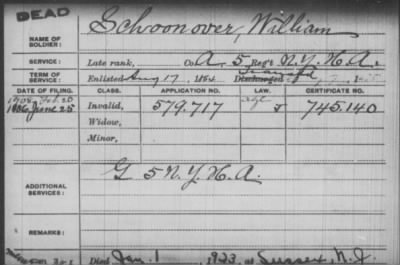 DEAD
NAME OF SOLDIER: Schoonover, William
SERVICE: Late rank, Co. A, 5 Reg't N.Y.H.A.
TERM OF SERVICE: Enlisted Aug 17, 1864 Discharged
DATE OF FILING. CLASS. APPLICATION NO. LAW. CERTIFICATE NO.
1908 Feb. 25
1886 June 25 Invalid, 579.717 J 745.140
Widow,
Minor,
ADDITIONAL SERVICES: G 5 N.Y.H.A.
REMARKS:
Died Jan. 1, 1923, at Sussex, N.J.